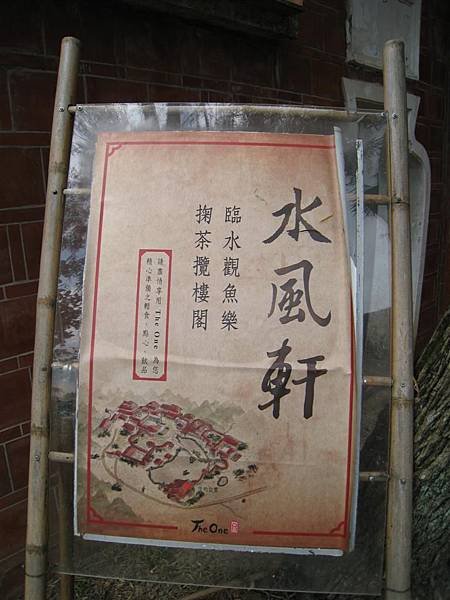 水風軒
臨水觀魚樂
掬茶攬樓閣
請盡情享用 The One 為您
精心準備之輕食、點心、飲品
The One